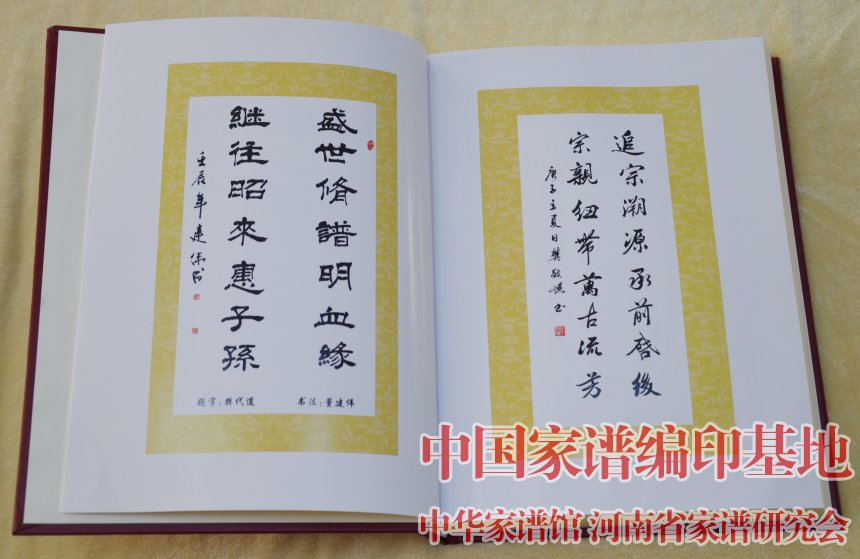 盛世脩譜明血緣
継往昭來惠子孫
壬辰年建偉书
题字:樊代道
书法:董建伟
追宗溯源承前啓後
宗親紐带萬古流芳
庚子立夏日樊敬謙书
中国家谱编印基地
中华家谱馆 河南省家谱研究会